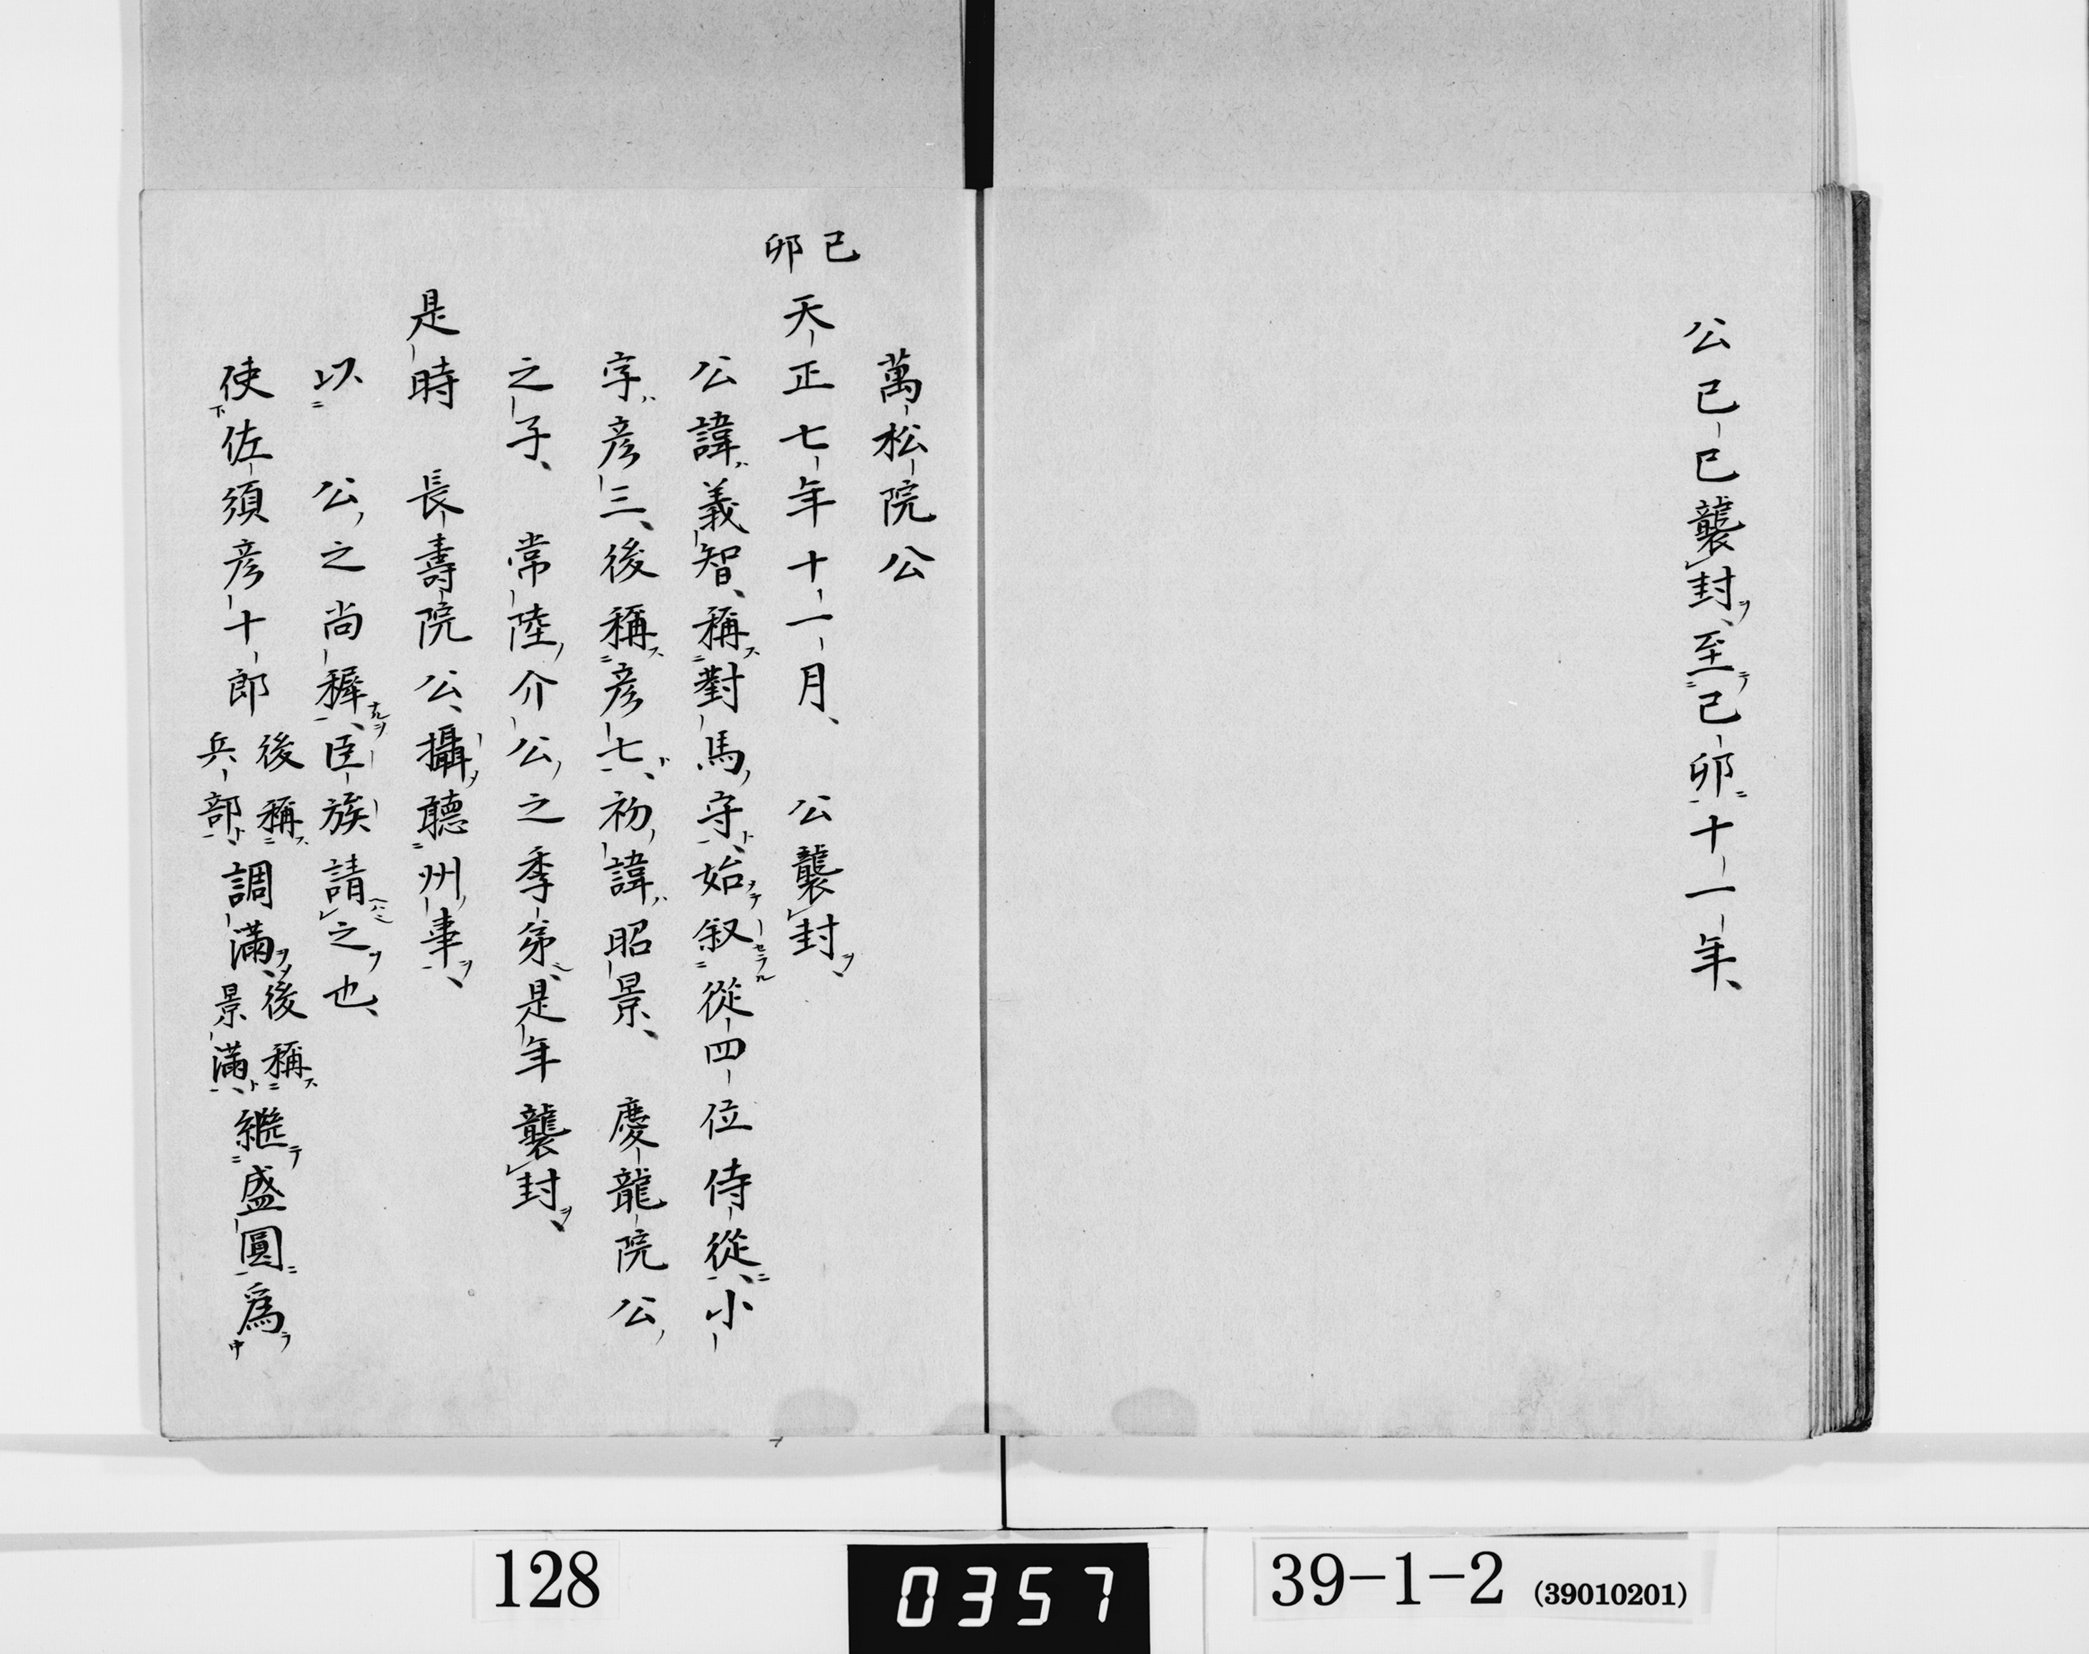 公己巳襲封至己卯十一年、
萬松院公
己卯
天正七年十一月、　公襲封、
公諱義智、稱對馬守、始叙從四位侍從、小
字彦三、後稱彦七、初諱昭景、　慶龍院公
之子、　常陸介公之季弟、是年襲封、
是時　長壽院公、攝聽州事、
以　公之尚穉、臣族請之也、
使佐須彦十郎 後稱兵部、調滿、後稱景滿、繼盛圓爲
128
0357
39-1-2 (39010201)